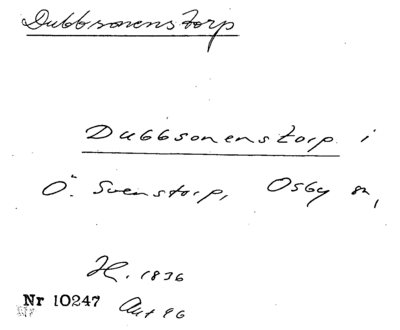 Dubbsonenstorp
Dubbsonenstorp i
Ö. Svenstorp, Osby sn,
H. 1836
Nr 10247 Akt 96